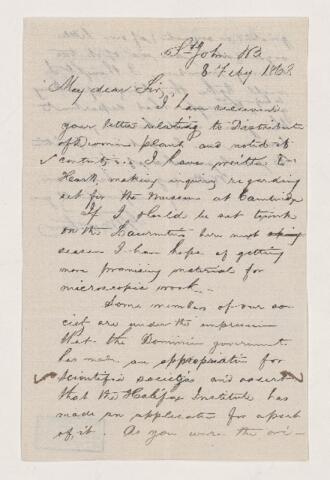 St John NB
8 Feby 1868
My dear Sir,
I have received
your letter relating to Distribut
of Devonian plants and noted it
contents. I have written to
Hartt making inquiry regarding
set for the Museum at Cambridge
If I should be set to work
on the Laurentian here next spring
season I have hope of getting
more promising material for
microscopic work.
Some members of our so-
ciety are under the impression
that the Dominion government
has made an appropriation for
scientific societies and assert
that the Halifax Institute has
made an application for a part
of it. As you were the ori-